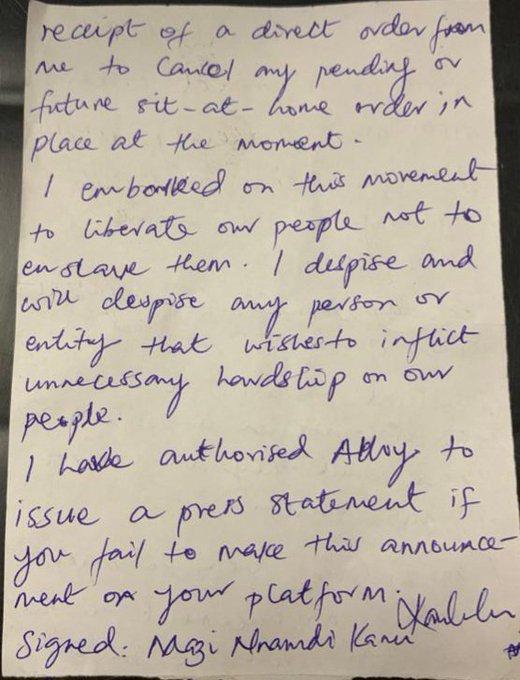 receipt of a direct order from
me to cancel any pending or
future sit-at-home order in
place at the moment.
I embarked on this movement
to liberate our people not to
enslave them. I despise and
will despise any person or
entity that wishes to inflict
unnecessary hardship on our
people.
I have authorised to
issue a press statement if
you fail to make this announce-
ment on your platform.
Signed: Mazi Nnamdi Kanu